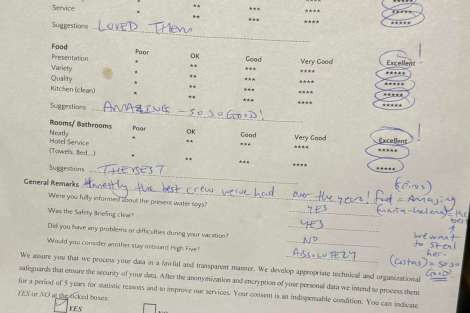 Service * ** *** **** *****
* ** *** **** *****
Suggestions LOVED THEM
Food Poor OK Good Very Good Excellent
Presentation * ** *** **** *****
Variety * ** *** **** *****
Quality * ** *** **** *****
Kitchen (clean) * ** *** **** *****
Suggestions AMAZING - SO SO GOOD!
Rooms/ Bathrooms Poor OK Good Very Good Excellent
Neatly * ** *** **** *****
Hotel Service
(Towels, Bed...) * ** *** **** *****
Suggestions THE BEST
General Remarks Honestly the best crew we've had over the years! food = Amazing
Were you fully informed about the present water toys? YES
Was the Safety Briefing clear? YES
we want
Did you have any problems or difficulties during your vacation? NO
to steal
her.
Would you consider another stay onboard High Five? ABSOLUTELY
(Costas) = SO SO
GOOD
We assure you that we process your data in a lawful and transparent manner. We develop appropriate technical and organizational
safeguards that ensure the security of your data. After the anonymization and encryption of your personal data we intend to process them
for a period of 5 years for statistic reasons and to improve our services. Your consent is an indispensable condition. You can indicate
YES or NO at the ticked boxes:
YES